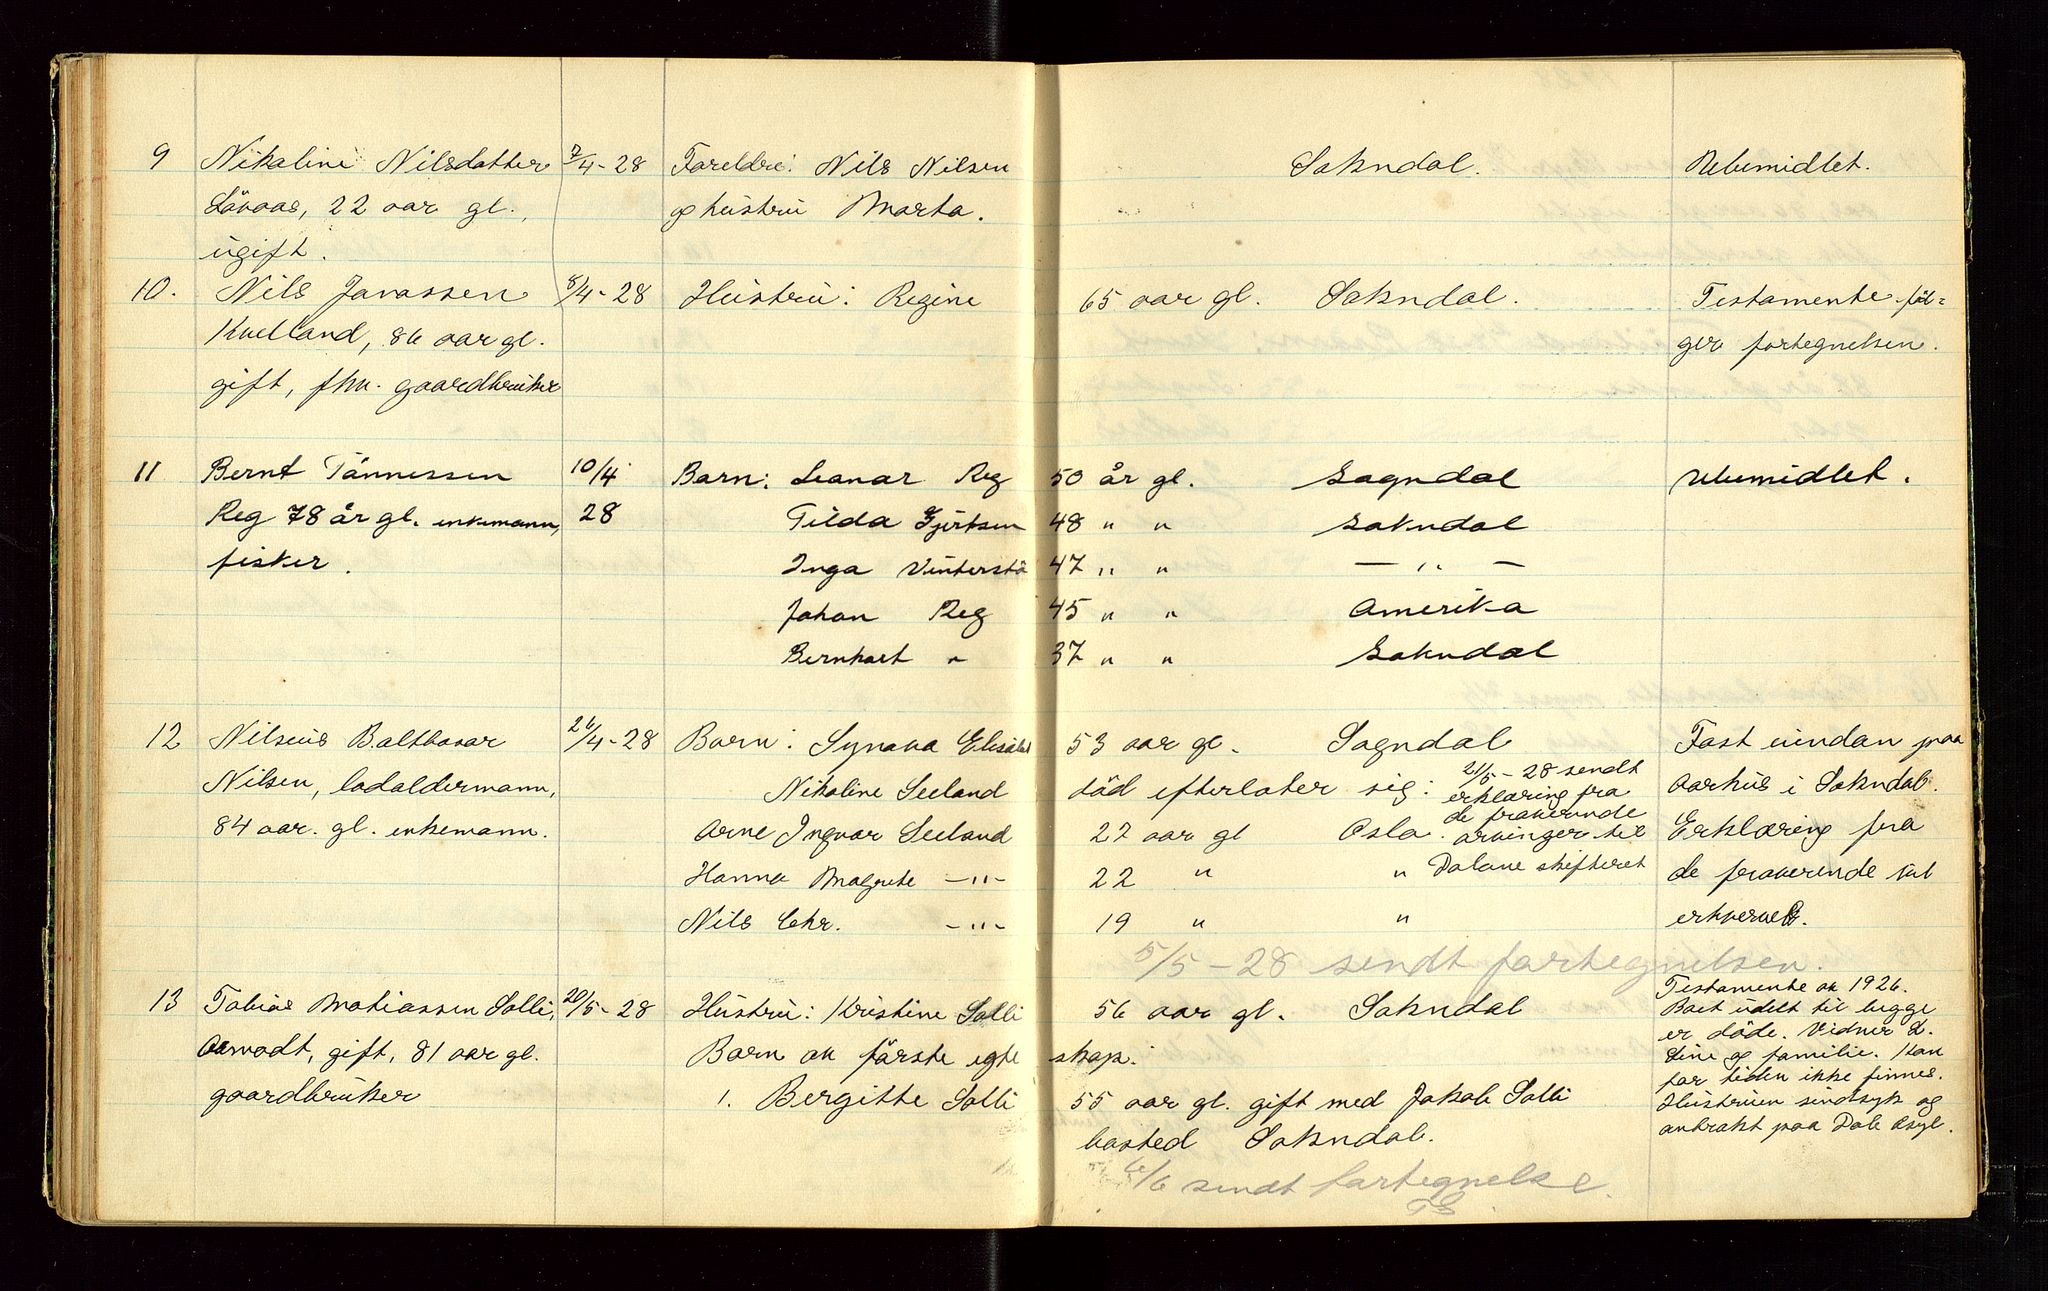 9 Nikoline Nilsdatter 7/4-28 Foreldre: Nils Nilsen Sokndal. Ubemidlet.
Låvaas, 22 aar gl., og hustru Marta.
ugift.
10. Nils Jonassen 8/4-28 Hustru: Regine 65 aar gl. Sokndal. Testamente föl=
Kvelland, 86 aar gl. ger fortegnelsen.
gift, fhv. gaardbruker
11 Bernt Tönnessen 10/4 Barn: Leonar Reg 50 år gl. Sogndal Ubemidlet.
Reg 78 år gl. enkemann, 28 Tilda Gjertsen 48 " " Sokndal
fisker. Inga Vinterstö 47 " " — " —
Johan Reg 45 " " Amerika
Bernhart " 37 " " Sokndal
12 Nilseus Baltbasar 26/4-28 Barn: Synova Elisabet 53 aar gl. Sogndal Fast eiendom paa
Nilsen, losoldermann, Nikoline Seeland död efterlater sig: 21/5-28 sendt Aarhus i Sokndal.
erklæring fra
de fraværende
84 aar. gl. enkemann. Arne Ingvar Seeland 27 aar gl Oslo. arvinger til Erklæring fra
Hanna Magrete —"— 22 " " Dalane skifteret de fraværende vil
Nils Chr. —"— 19 " " erhverves.
5/5-28 sendt fortegnelsen.
13 Tobias Mathiassen Solli, 20/5-28 Hustru: Kristine Solli 56 aar gl. Sokndal Testamente av 1926.
Boet udelt til begge
er döde. Vidner
Aamodt, gift, 81 aar gl. Barn av förste egte skap: Line og familie. Kan
for tiden ikke finnes.
gaardbruker 1. Bergitte Solli 55 aar gl. gift med Jakob Solli Hustruen sindsyk og
bosted Sokndal. anbrakt paa Dale Asyl.
6/6 sendt fortegnelse.
TS.